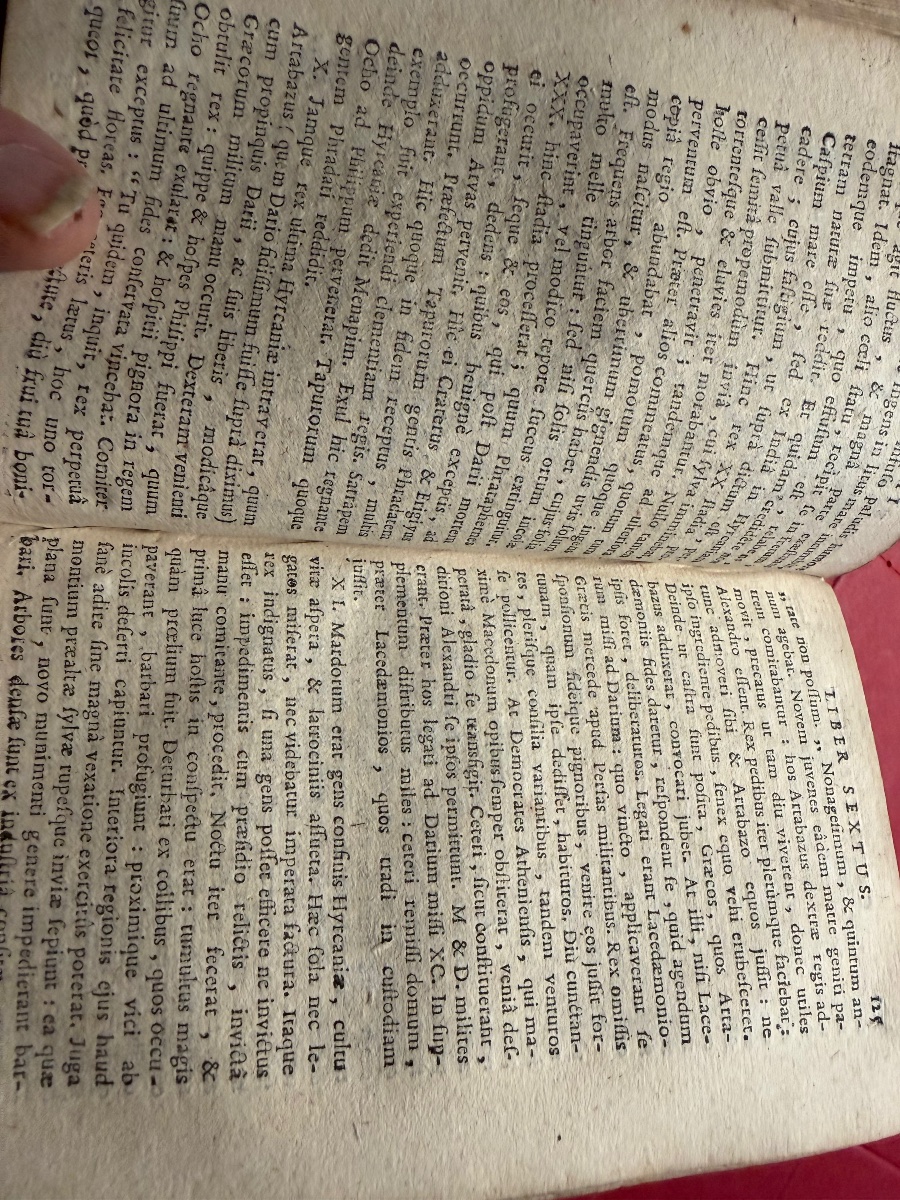 agit fluctus, & magnâ
stagnat. Idem, alio cœli statu,
eodemque impetu, quo effusum est, in
terram naturæ suæ reddit. Et quidam,
Caspium mare esse, sed ex Indiâ in
cadere; cujus fastigium, ut suprà dictum
petuâ valle submittitur. Hinc rex XX.
cessit semitâ propemodùm inviâ, cui sylva
torrentesque & eluvies iter morabantur. Nullo
hoste obvio, penetravit; tandemque ad
perventum est. Præter alios commeatus,
copiâ regio abundabat, pomorum quoque
modus nascitur, & uberrimum gignendis uvis solum
est. Frequens arbor faciem quercus habet, cujus folia
multo melle tinguntur: sed nisi solis ortum incolæ
occupaverint, vel modico tepore succus extinguitur.
XXX. hinc stadia processerat; quum Phrataphernes
ei occurit, seque & eos, qui post Darii mortem
profugerant, dedens: quibus benignè exceptis, ad
oppidum Arvas pervenit. Hîc ei Craterus & Erigyius
occurrunt. Præfectum Tapurorum gentis Phradatem
adduxerant. Hic quoque in fidem receptus, multis
exemplo fuit experiendi clementiam regis. Satrapem
deinde Hyrcaniæ dedit Menapim. Exul hic regnante
Ocho ad Philippum pervenerat. Tapurorum quoque
gentem Phradati reddidit.
X. Jamque rex ultima Hyrcaniæ intraverat, quum
Artabazus (quem Dario fidissimum fuisse suprà diximus)
cum propinquis Darii, ac suis liberis, modicâque
Græcorum militum manu occurit. Dexteram venienti
obtulit rex: quippe & hospes Philippi fuerat, quum
Ocho regnante exularat: & hospitii pignora in regem
suum ad ultimum fides conservata vincebat. Comiter
gitur exceptus: « Tu quidem, inquit, rex perpetuâ
felicitate floreas. Ego ceteris lætus, hoc uno tor-
queor, quòd pr diù frui tuâ boni-
LIBER SEXTUS. 115
,, tate non possum. ,, Nonagesimum, & quintum an-
num agebat. Novem juvenes eâdem matre geniti pa-
trem comitabantur: hos Artabazus dextræ regis ad-
movit, precatus ut tam diu viverent, donec utiles
Alexandro essent. Rex pedibus iter plerùmque faciebat:
tunc admoveri sibi & Artabazo equos jussit: ne
ipso ingrediente pedibus, senex equo vehi erubesceret.
Deinde ut castra sunt posita, Græcos, quos Arta-
bazus adduxerat, convocari jubet. At illi, nisi Lace-
dæmoniis fides daretur, respondent se, quid agendum
ipsis foret, deliberaturos. Legati erant Lacedæmonio-
rum missi ad Darium: quo victo, applicaverant se
Græcis mercede apud Persas militantibus. Rex omissis
sponsionum fideique pignoribus, venire eos jussit for-
tunam, quam ipse dedisset, habituros. Diù cunctan-
tes, plerisque consilia variantibus, tandem venturos
se pollicentur. At Democrates Atheniensis, qui ma-
ximè Macedonum opibus semper obstiterat, veniâ des-
peratâ, gladio se transfigit. Ceteri, sicut constituerant,
ditioni Alexandri se ipsos permittunt. M & D. milites
erant. Præter hos legati ad Darium missi XC. In sup-
plementum distributus miles: ceteri remissi domum,
præter Lacedæmonios, quos tradi in custodiam
jussit.
XI. Mardorum erat gens confinis Hyrcaniæ, cultu
vitæ aspera, & latrociniis assueta. Hæc sola nec le-
gatos miserat, nec videbatur imperata factura. Itaque
rex indignatus, si una gens posset efficere ne invictus
esset: impedimentis cum præsidio relictis, invictâ
manu comitante, procedit. Noctu iter fecerat, &
primâ luce hostis in conspectu erat: tumultus magis
quàm prœlium fuit. Deturbati ex collibus, quos occu-
paverant, barbari profugiunt: proximique vici ab
incolis deserti capiuntur. Interiora regionis ejus haud
sane adire sine magnâ vexatione exercitûs poterat. Juga
montium præaltæ sylvæ rupesque inviæ sepiunt: ea quæ
plana sunt, novo munimenti genere impedierant bar-
bari. Arbores densæ sunt ex industriâ